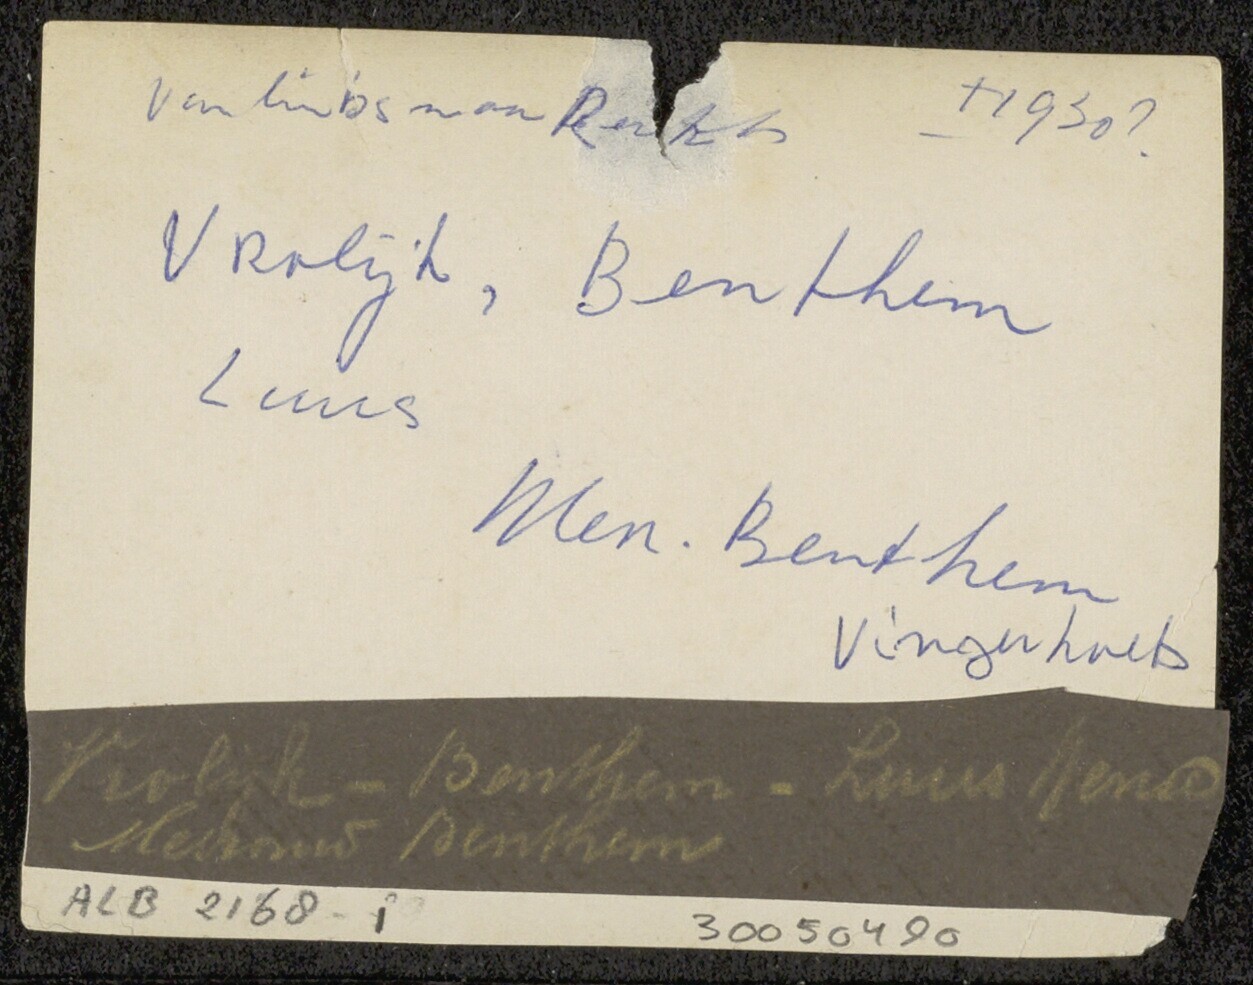 van links naar Rechts ± 1930?
Vrolijk, Benthem
Luus
Men. Benthem
Vingerhoets
Vrolijk - Benthem - Luus
Mevrouw Benthem
ALB 2168-i 30050490